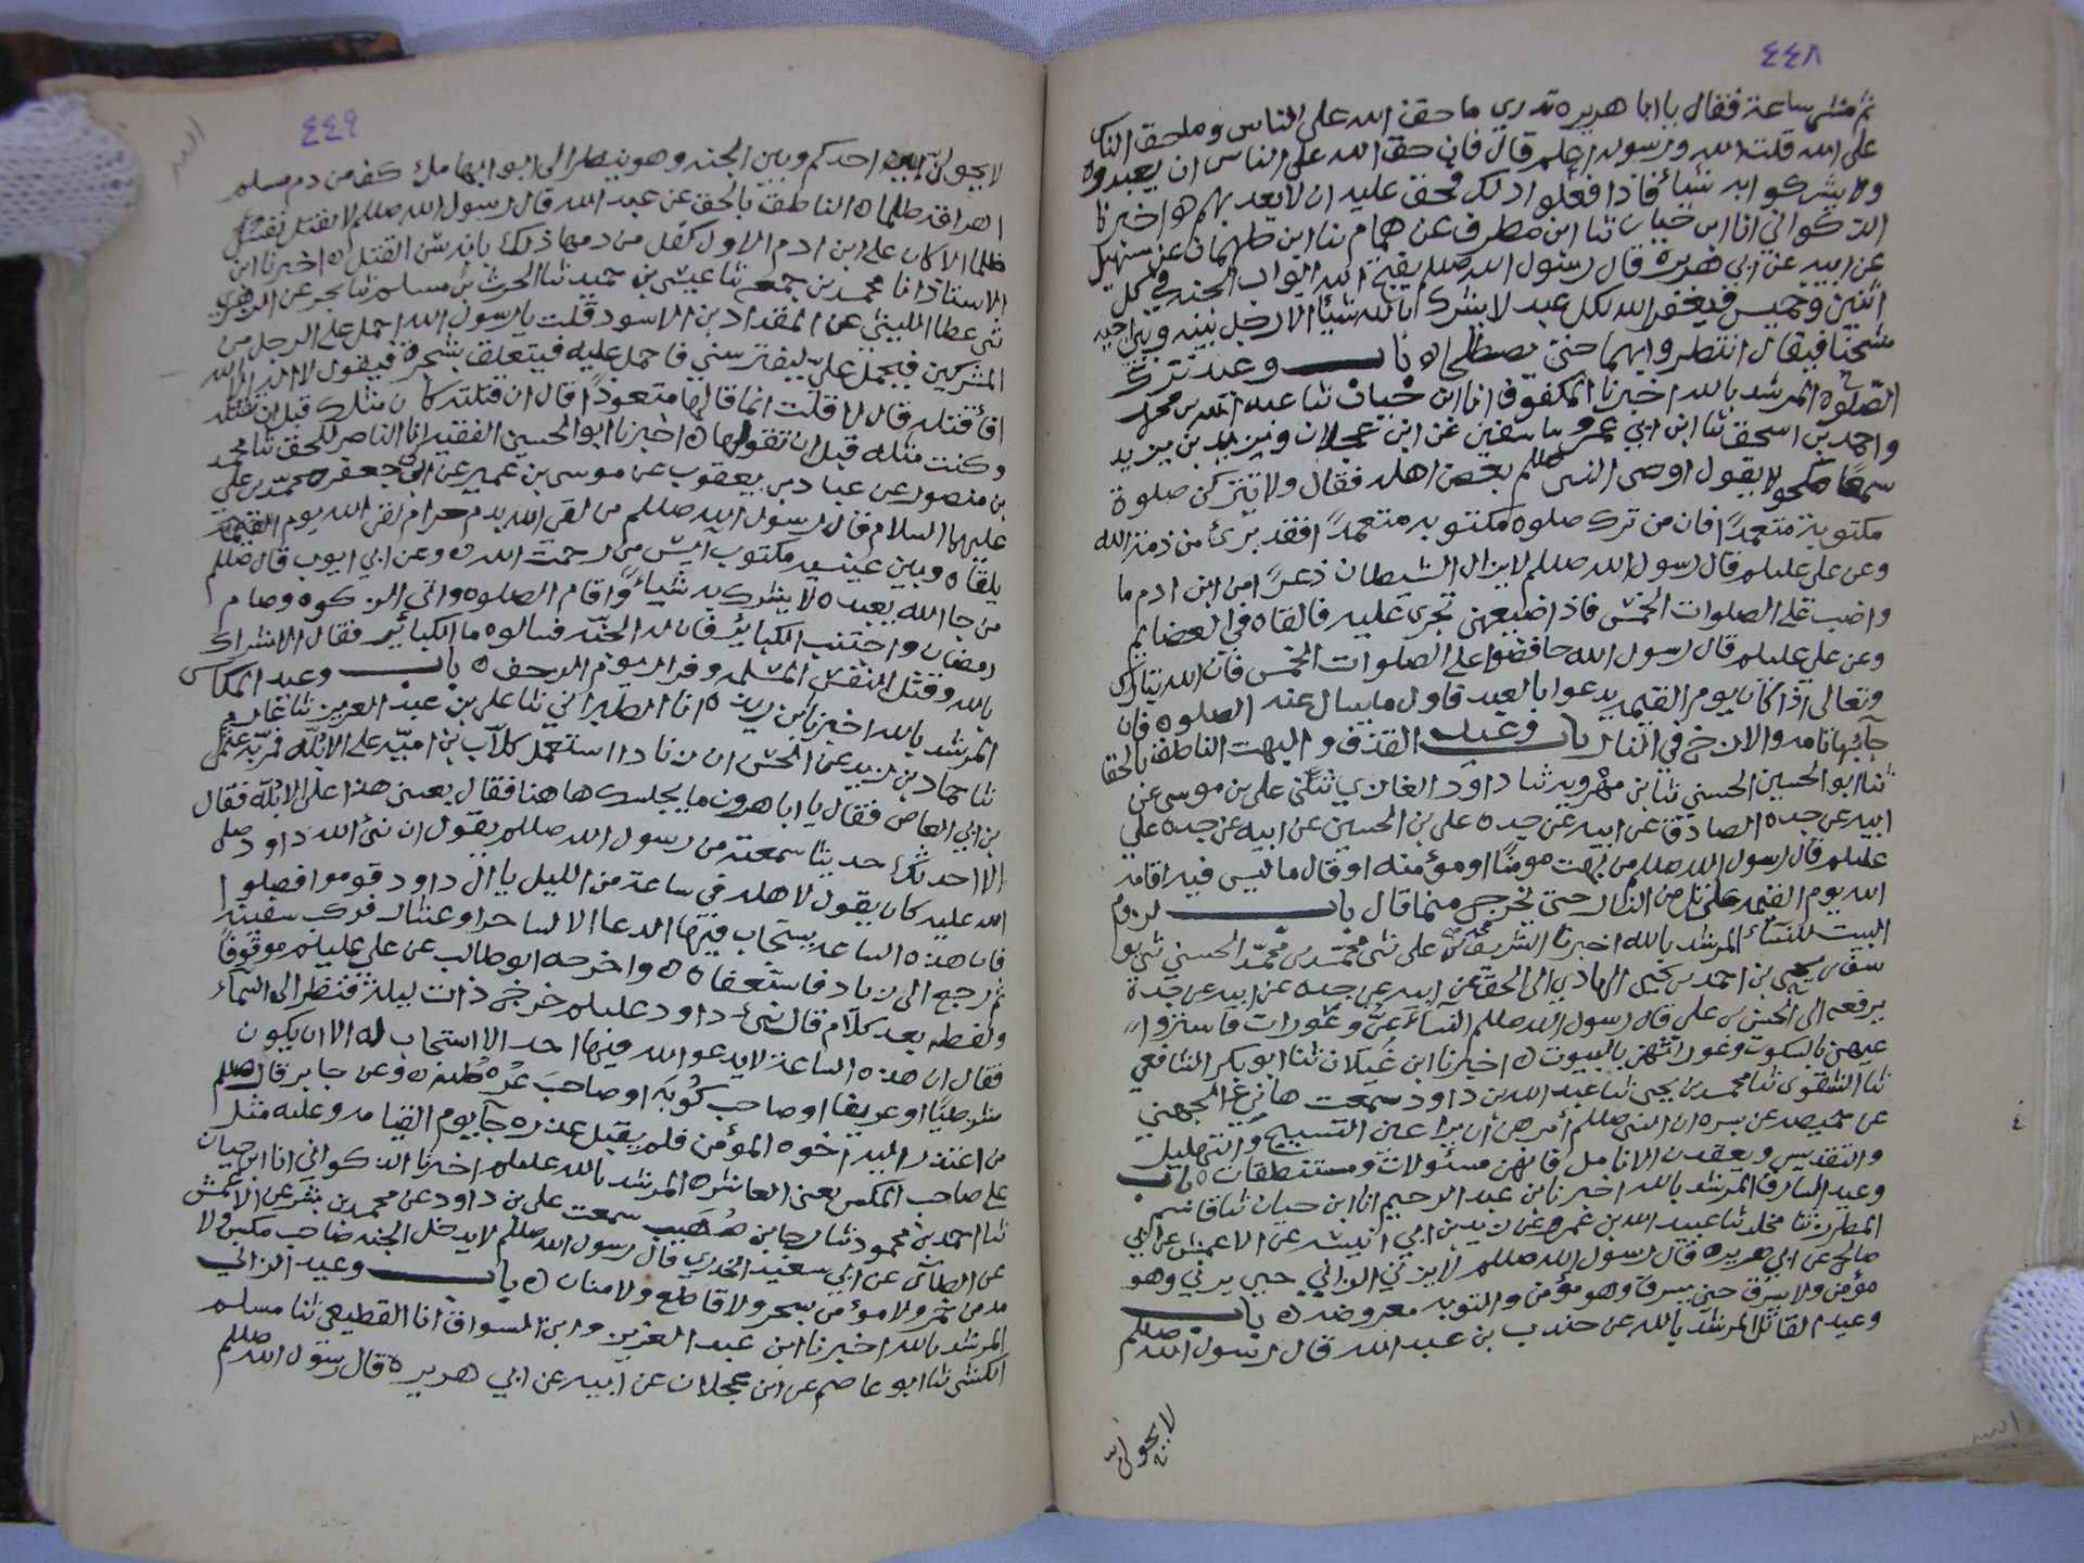 ٤٤٨
ثم مشى ساعة فقال يا ابا هريرة تدري ما حق الله على الناس وما حق الناس
على الله قلت الله ورسوله اعلم قال فان حق الله على الناس ان يعبدوه
ولا يشركوا به شيأ فاذا فعلوا ذلك فحق عليه ان لا يعذبهم ه اخبرنا
الذكواني انا ابن حيان ثنا ابن مطرف عن همام ثنا ابن طهمان عن سهيل
عن ابيه عن ابي هريرة قال رسول الله صللم يفتح الله ابواب الجنه في كل
اثنين وخميس فيغفر الله لكل عبد لا يشرك بالله شيأ الا رجل بينه وبين اخيه
شحنا فيقال انتظروا بهما حتى يصطلحا ه باب وعيد ترك
الصلوة المرشد بالله اخبرنا المكفوف انا ابن حيان ثنا عبد الله بن محمد
واحمد بن اسحق ثنا ابن ابي عمر سفين عن ابن عجلان ويزيد بن يزيد
سمعا مكحولا يقول اوصى النبي صللم بعض اهله فقال ولا تتركن صلوة
مكتوبة متعمداً فان من ترك صلوه مكتوبه متعمداً فقد برئ من ذمة الله
وعن علي عليلم قال رسول الله صللم لا يزال الشيطان ذعراً من ابن ادم ما
واضب على الصلوات الخمس فاذا ضيعهن تجرى عليه فالقاه في العضايم
وعن علي عليلم قال رسول الله حافضوا على الصلوات الخمس فان الله تبارك
وتعالى اذا كان يوم القيمه يدعوا بالعبد فاول ما يسال عنه الصلوه فان
جآبها تامه والا زخ في النار باب وعيد القذف والبهت الناطق بالحق انا
ثنا ابو الحسين الحسني ثنا ابن مهرويه ثنا داود الغازي ثنى علي بن موسى عن
ابيه عن جده الصادق عن ابيه عن جده علي بن الحسين عن ابيه عن جده علي
عليلم قال رسول الله صللم من بهت مومناً او مؤمنه او قال ما ليس فيه اقامه
الله يوم القيمه على تل من النار حتى يخرج مما قال باب لزوم
البيت للنسآء المرشد بالله اخبرنا الشريف محمد بن علي ثنى محمد بن محمد الحسني ثنى ابو
يحيى بن احمد بن يحيى الهادي الى الحق عن ابيه عن جده عن ابيه عن جده
يرفعه الى الحسن بن علي قال رسول الله صللم النسآء عي وعورات فاستروا
عيهن بالسكوت وعوراتهن بالبيوت ه اخبرنا ابن غيلان ثنا ابو بكر الشافعي
ثنا محمد بن يحيى ثنا عبد الله بن داود سمعت هاني الجهني
عن حميصه عن يسره ان النبي صللم امرهن ان يراعين التسبيح والتهليل
والتقديس ويعقدن الانامل فانهن مسئولات ومستنطقات ه باب
وعيد السارق المرشد بالله اخبرنا ابن عبد الرحيم انا ابن حيان ثنا قاسم
المطرز ثنا مخلد ثنا عبيد الله بن عمرو عن زيد بن ابي انيسه عن الاعمش عن ابي
صالح عن ابي هريره قال رسول الله صللم لا يزني الزاني حين يزني وهو
مؤمن ولا يسرق حين يسرق وهو مؤمن والتوبه معروضه ه باب
وعيد القاتل المرشد بالله عن جندب بن عبد الله قال رسول الله صللم
لا يحولن
٤٤٩
لا يحولن بين احدكم وبين الجنه وهو ينظر الى ابوابها ملء كف من دم مسلم
اهراقه ظلما ه الناطق بالحق عن عبد الله قال رسول الله صللم لا تقتل نفس
ظلما الا كان على ابن ادم الاول كفل من دمها ذلك بانه سن القتل ه اخبرنا ابن
الاستاذ انا محمد بن جمعه ثنا عيسى بن حميد ثنا الحرث بن مسلم ثنا بحر عن الزهري
ثنى عطا الليثي عن المقداد بن الاسود قلت يا رسول الله احمل على الرجل من
المشركين فيحمل علي ليفترسني فاحمل عليه فيتعلق بشجرة فيقول لا اله الا الله
افأقتله قال لا قلت انما قالها متعوذاً قال ان قتلته كان مثلك قبل ان تقتله
وكنت مثله قبل ان تقولها ه اخبرنا ابو الحسين الفقيه انا الناصر للحق ثنا محمد
بن منصور عن عباد بن يعقوب عن موسى بن عمير عن ابي جعفر محمد بن علي
عليهما السلام قال رسول الله صللم من لقى الله بدم حرام لقى الله يوم القيمه
يلقاه وبين عينيه مكتوب ايس من رحمت الله ه وعن ابي ايوب قال صللم
من جا الله يعبده لا يشرك به شيأً واقام الصلوه واتى الزكوه وصام
رمضان واجتنب الكبائر فان له الجنه فسالوه ما الكبائر فقال الاشراك
بالله وقتل النفس المسلمه وفرار يوم الزحف ه باب وعيد المكاس
المرشد بالله اخبرنا ابن ريذه انا الطبراني ثنا علي بن عبد العزيز ثنا عارم
ثنا حماد بن زيد عن الحسن ان زيادا استعمل كلاب بن اميه على الابله فمر به عثمن
بن ابي العاص فقال يا ابا هرون ما يجلسك هاهنا فقال بعثني هذا على الابله فقال
الا احدثك حديثا سمعته من رسول الله صللم يقول ان نبئ الله داود صلى
الله عليه كان يقول لاهله في ساعة من الليل يا ال داود قوموا فصلوا
فان هذه الساعه يستجاب فيها الدعا الا لساحر او عشار فركب سفينه
ثم رجع الى زياد فاستعفاه ه واخرجه ابو طالب عن علي عليلم موقوفاً
ولفظه بعد كلام قال نبئ داود عليلم خرج ذات ليلة فنظر الى السماء
فقال ان هذه الساعة لا يدعو الله فيها احد الا استجاب له الا ان يكون
او عريفا او صاحب كوبه او صاحب عرطبه ه وعن جابر قال صللم
من اعتذر اليه اخوه المؤمن فلم يقبل عذره جآ يوم القيامه وعليه مثل
على صاحب المكس يعنى العاشر ه المرشد بالله عليلم اخبرنا الذكواني انا ابن حيان
ثنا احمد بن محمود ثنا رجا بن صهيب سمعت علي بن داود عن محمد بن بشر عن الاعمش
عن الطائي عن ابي سعيد الخدري قال رسول الله صللم لا يدخل الجنه صاحب مكس ولا
مدمن خمر ولا مؤمن بسحر ولا قاطع ولا منان ه باب وعيد الزاني
المرشد بالله اخبرنا ابن عبد العزيز وابن السواق انا القطيعي ثنا مسلم
الكشي ثنا ابو عاصم عن ابن عجلان عن ابيه عن ابي هريره قال رسول الله صللم